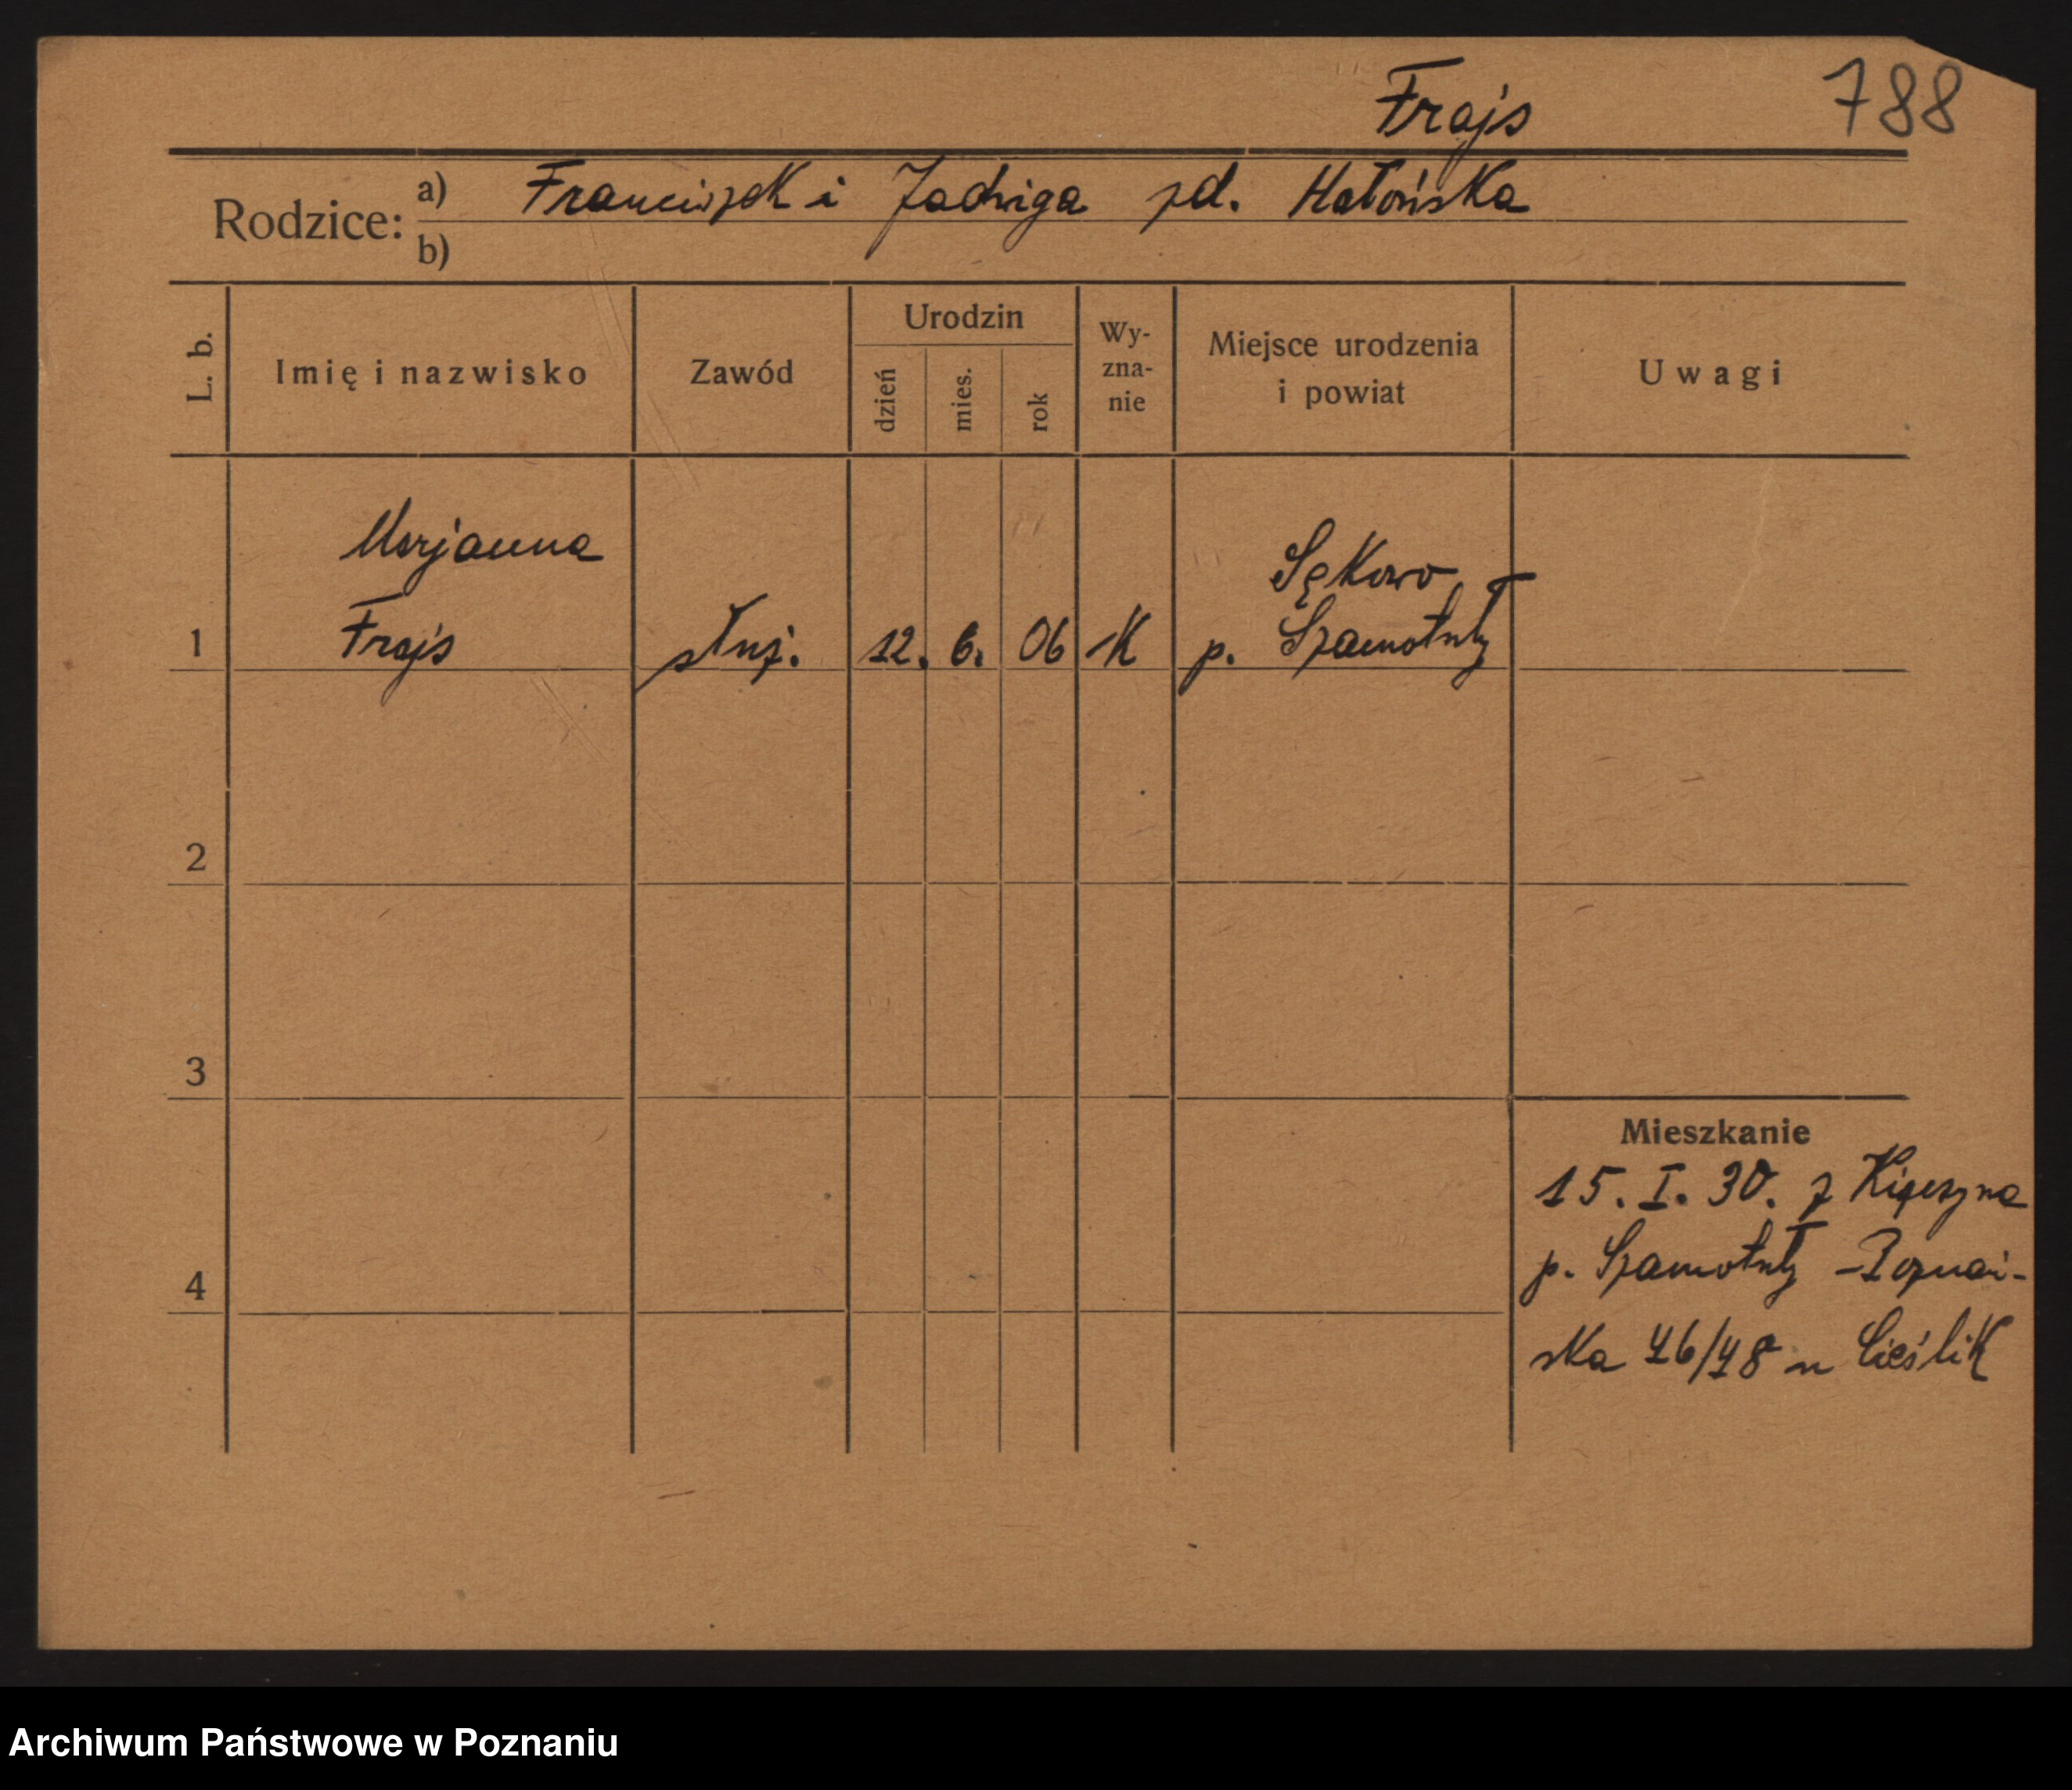 Frajs 788
Rodzice: a) Franciszek i Jadwiga zd. Hałońska
b)
L. b. Imię i nazwisko Zawód Urodzin dzień mies. rok Wy-zna-nie Miejsce urodzenia i powiat Uwagi
Marjanna Sękowo
1 Frajs służ. 12. 6. 06 K p. Szamotuły
2
3
Mieszkanie
15. I. 30. z
4 p. Szamotuły - Poznań-
ska 46/48 u Cieślik
Archiwum Państwowe w Poznaniu